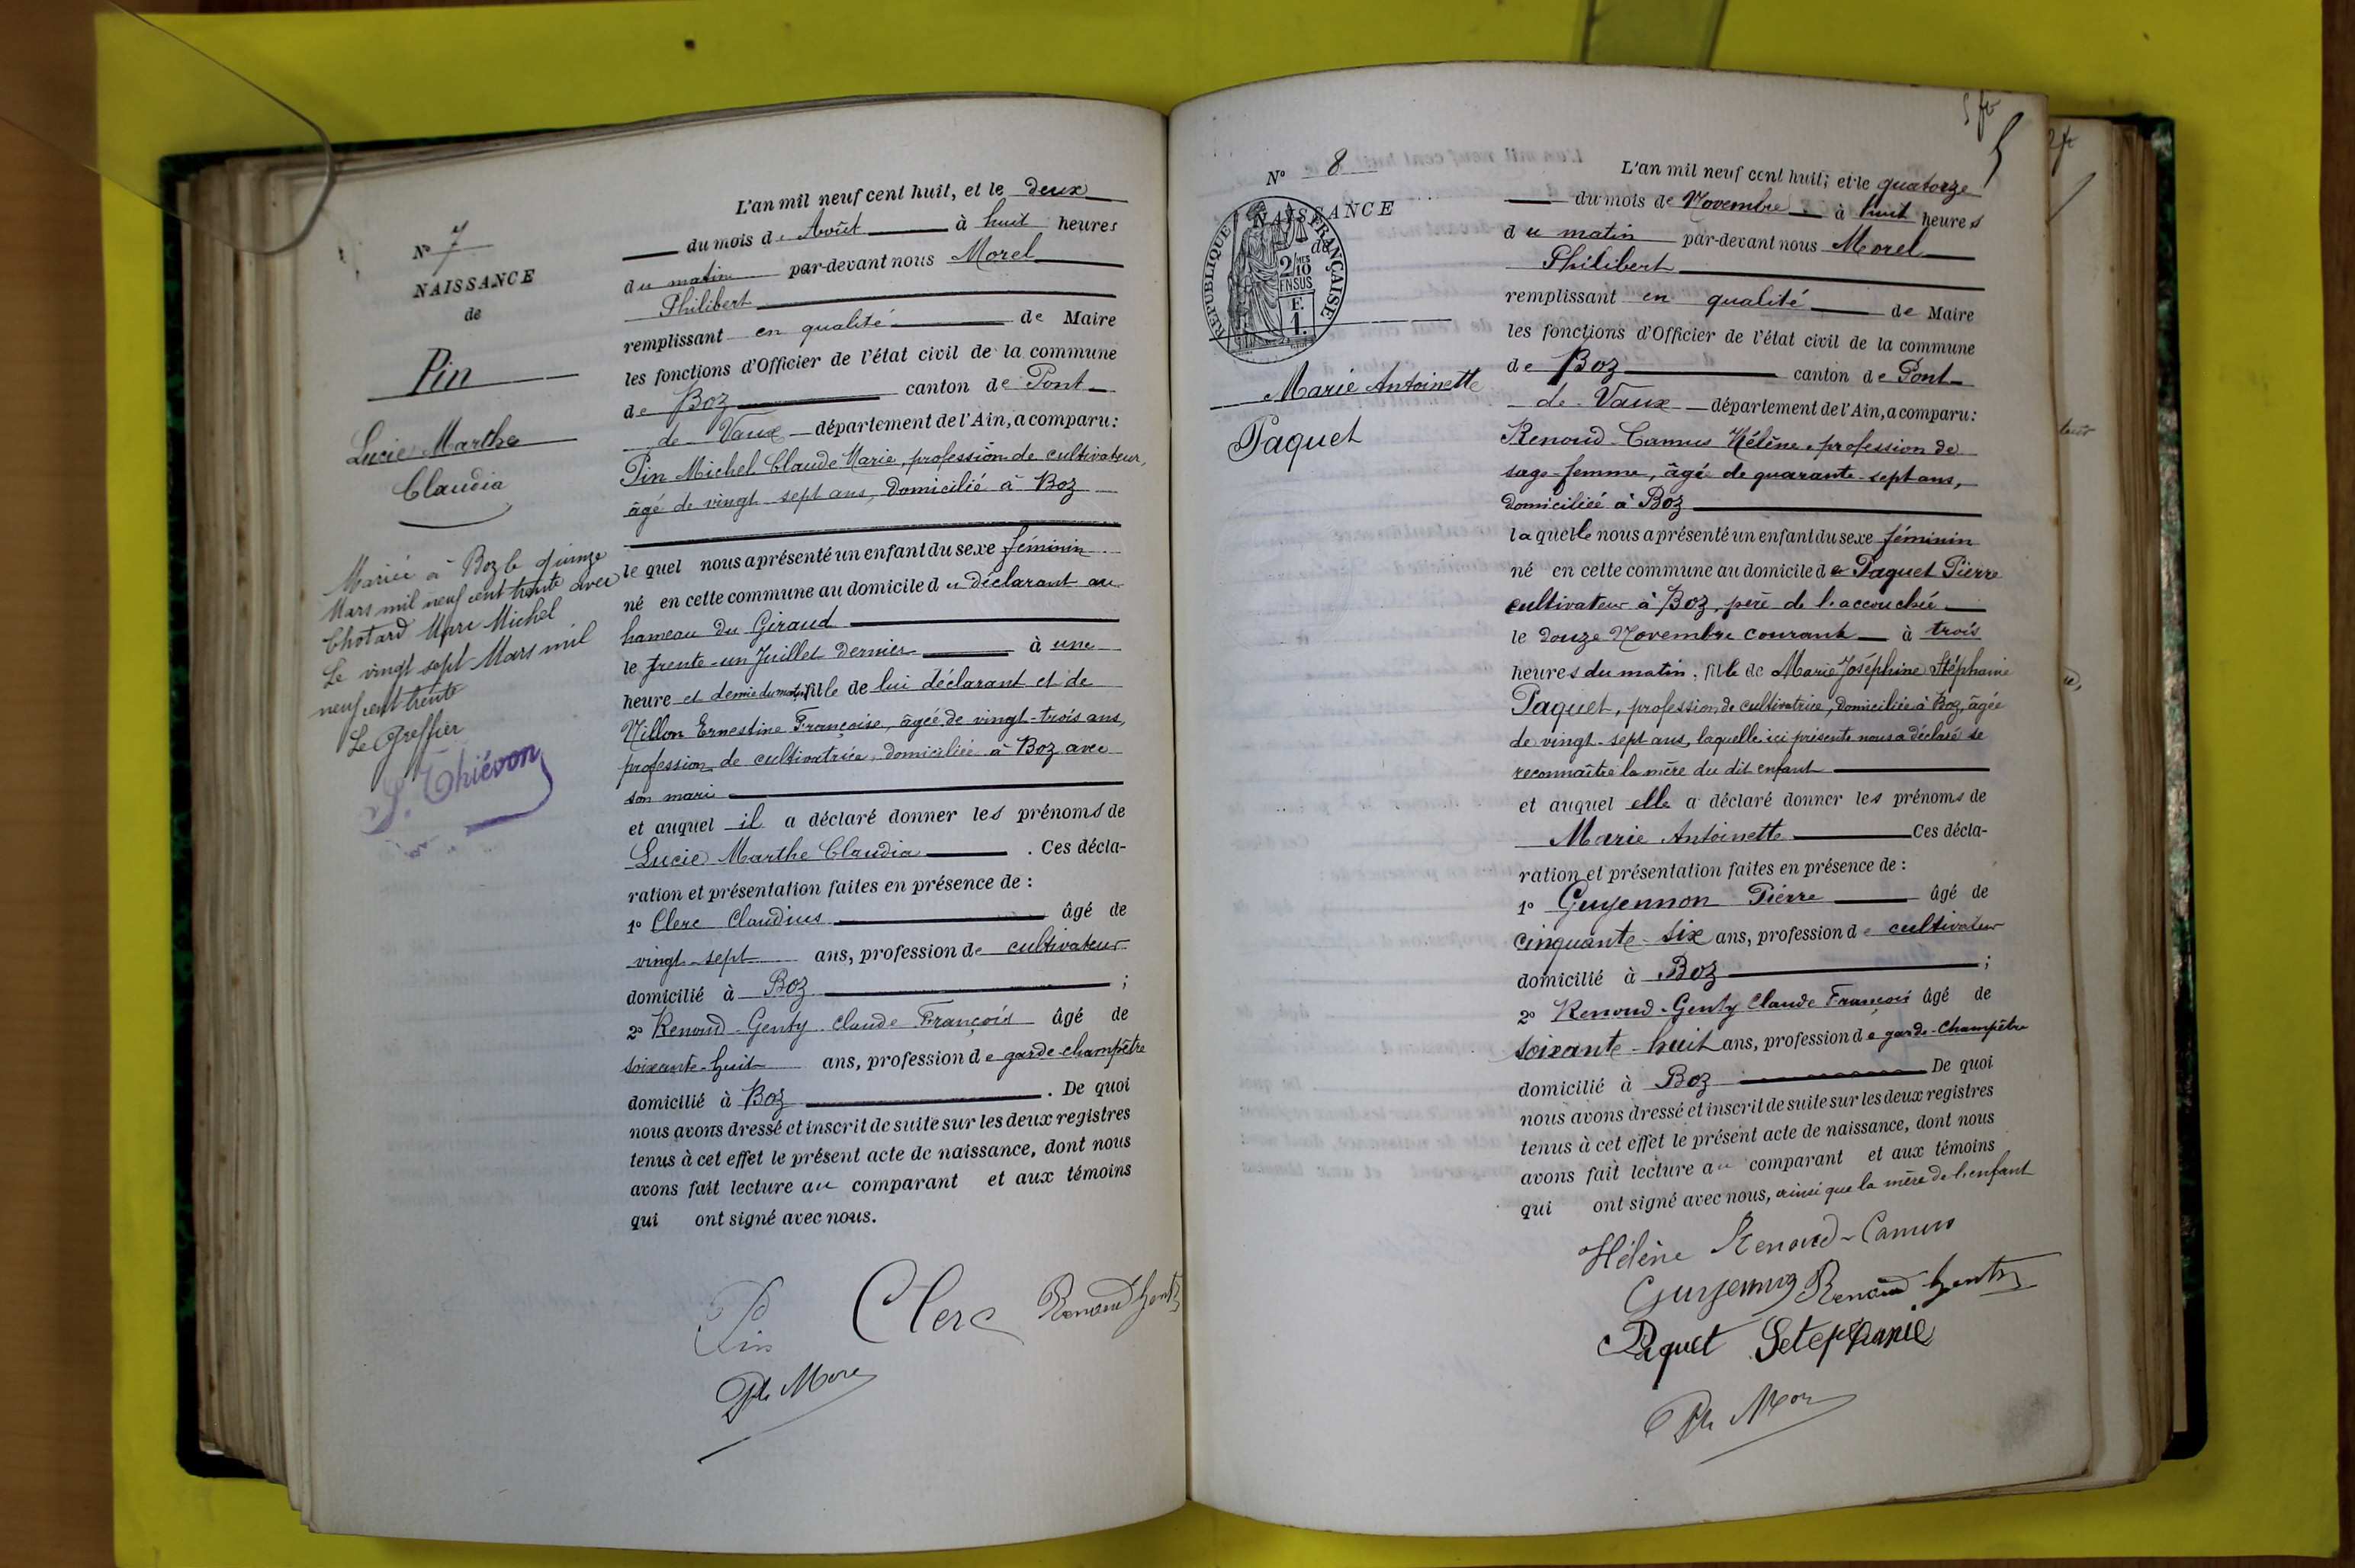 N° 7
NAISSANCE
de
Pin
Lucie Marthe
Claudia
Mariée à Boz le quinze
Mars mil neuf cent trente avec
Chotard Marc Michel
Le vingt sept Mars mil
neuf cent trente
Le Greffier
S. Thiévon
L'an mil neuf cent huit, et le deux
du mois de Août à huit heures
du matin par-devant nous Morel
Philibert
remplissant en qualité de Maire
les fonctions d'Officier de l'état civil de la commune
de Boz canton de Pont
de Vaux département de l'Ain, a comparu:
Pin Michel Claude Marie, profession de cultivateur,
âgé de vingt sept ans, domicilié à Boz
le quel nous a présenté un enfant du sexe féminin
né en cette commune au domicile du déclarant au
hameau du Giraud
le trente-un Juillet dernier à une
heure et demie du matin, fille de lui déclarant et de
Villon Ernestine Françoise, âgée de vingt-trois ans,
profession de cultivatrice, domiciliée à Boz avec
son mari
et auquel il a déclaré donner les prénoms de
Lucie Marthe Claudia . Ces décla-
ration et présentation faites en présence de :
1° Clerc Claudius âgé de
vingt-sept ans, profession de cultivateur
domicilié à Boz ;
2° Renoud-Genty Claude François âgé de
soixante-huit ans, profession de garde-champêtre
domicilié à Boz . De quoi
nous avons dressé et inscrit de suite sur les deux registres
tenus à cet effet le présent acte de naissance, dont nous
avons fait lecture au comparant et aux témoins
qui ont signé avec nous.
Pin Clerc Renoud Genty
Ph Morel
5 fr
2 fr
N° 8
NAISSANCE
de
REPUBLIQUE FRANÇAISE
2/10 MES
EN SUS
F.
1.
Marie Antoinette
Paquet
L'an mil neuf cent huit; et le quatorze
du mois de Novembre à huit heures
du matin par-devant nous Morel
Philibert
remplissant en qualité de Maire
les fonctions d'Officier de l'état civil de la commune
de Boz canton de Pont
de Vaux département de l'Ain, a comparu:
Renoud-Camus Hélène, profession de
sage-femme, âgé de quarante-sept ans,
domiciliée à Boz
la quelle nous a présenté un enfant du sexe féminin
né en cette commune au domicile de Paquet Pierre
cultivateur à Boz, père de l'accouchée
le douze Novembre courant à trois
heures du matin, fille de Marie Joséphine Stéphanie
Paquet, profession de cultivatrice, domiciliée à Boz, âgée
de vingt-sept ans, laquelle ici présente nous a déclaré se
reconnaître la mère du dit enfant
et auquel elle a déclaré donner les prénoms de
Marie Antoinette Ces décla-
ration et présentation faites en présence de :
1° Guyennon Pierre âgé de
cinquante-six ans, profession de cultivateur
domicilié à Boz ;
2° Renoud-Genty Claude François âgé de
soixante-huit ans, profession de garde-champêtre
domicilié à Boz De quoi
nous avons dressé et inscrit de suite sur les deux registres
tenus à cet effet le présent acte de naissance, dont nous
avons fait lecture au comparant et aux témoins
qui ont signé avec nous, ainsi que la mère de l'enfant
Hélène Renoud-Camus
Guyennon Renoud Genty
Paquet Setephanie
Ph Mor